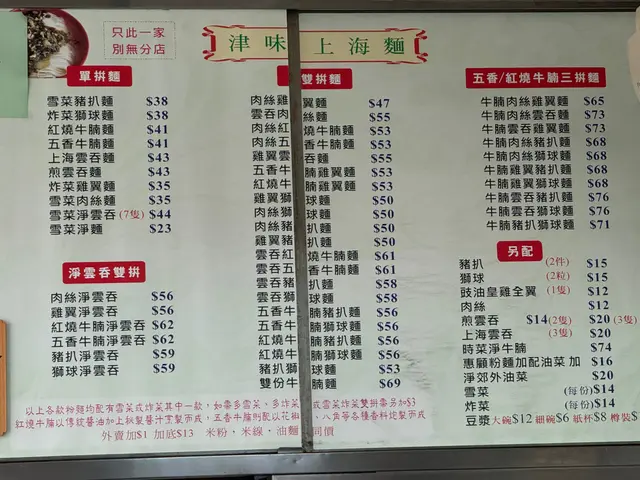 只此一家
別無分店
津味上海麵
單拼麵
雪菜豬扒麵 $38
炸菜獅球麵 $38
紅燒牛腩麵 $41
五香牛腩麵 $41
上海雲吞麵 $43
煎雲吞麵 $43
炸菜雞翼麵 $35
雪菜肉絲麵 $35
雪菜淨雲吞(7隻) $44
雪菜淨麵 $23
淨雲吞雙拼
肉絲淨雲吞 $56
雞翼淨雲吞 $56
紅燒牛腩淨雲吞 $62
五香牛腩淨雲吞 $62
豬扒淨雲吞 $59
獅球淨雲吞 $59
雙拼麵
肉絲雞翼麵 $47
雲吞肉絲麵 $55
肉絲紅燒牛腩麵 $53
肉絲五香牛腩麵 $53
雞翼雲吞麵 $55
五香牛腩雞翼麵 $53
紅燒牛腩雞翼麵 $53
雞翼獅球麵 $50
肉絲獅球麵 $50
肉絲豬扒麵 $50
雞翼豬扒麵 $50
雲吞紅燒牛腩麵 $61
雲吞五香牛腩麵 $61
雲吞豬扒麵 $58
雲吞獅球麵 $58
五香牛腩豬扒麵 $56
五香牛腩獅球麵 $56
紅燒牛腩豬扒麵 $56
紅燒牛腩獅球麵 $56
豬扒獅球麵 $53
雙份牛腩麵 $69
五香/紅燒牛腩三拼麵
牛腩肉絲雞翼麵 $65
牛腩肉絲雲吞麵 $73
牛腩雲吞雞翼麵 $73
牛腩肉絲豬扒麵 $68
牛腩肉絲獅球麵 $68
牛腩雞翼豬扒麵 $68
牛腩雞翼獅球麵 $68
牛腩雲吞豬扒麵 $76
牛腩雲吞獅球麵 $76
牛腩豬扒獅球麵 $71
另配
豬扒 (2件) $15
獅球 (2粒) $15
豉油皇雞全翼 (1隻) $12
肉絲 $12
煎雲吞 $14(2隻) $20 (3隻)
上海雲吞 (3隻) $20
時菜淨牛腩 $74
惠顧粉麵加配油菜 加 $16
淨郊外油菜 $20
雪菜 (每份)$14
炸菜 (每份)$14
豆漿 大碗$12 細碗$6 紙杯$8 樽裝$
以上各款粉麵均配有雪菜或炸菜其中一款，如需多雪菜、多炸菜或雪菜炸菜雙拼需另加$3
紅燒牛腩以傳統醬油加上秘製醬汁烹製而成，五香牛腩則配以花椒、八角等各種香料炆製而成
外賣加$1 加底$13 米粉、米線、油麵同價